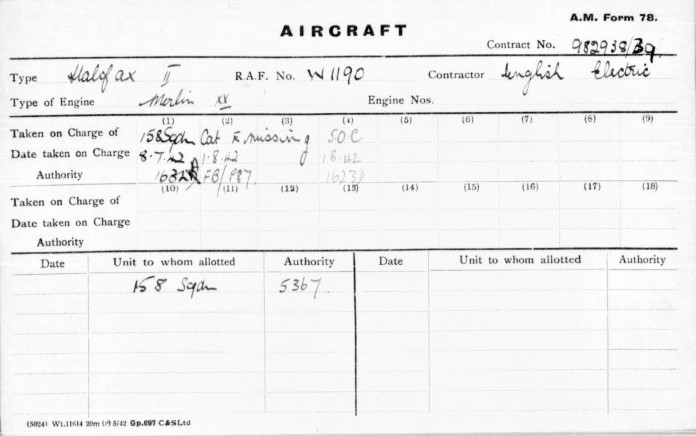 A.M. Form 78.
AIRCRAFT
Contract No. 982938/39
Type Halifax II R.A.F. No. W1190 Contractor English Electric
Type of Engine Merlin XX Engine Nos.
(1) (2) (3) (4) (5) (6) (7) (8) (9)
Taken on Charge of 158 Sqdn Cat E missing S.O.C
Date taken on Charge 8.7.42 1.8.42 1 8.42
Authority FB/ 1623
(10) (11) (12) (13) (14) (15) (16) (17) (18)
Taken on Charge of
Date taken on Charge
Authority
Date Unit to whom allotted Authority Date Unit to whom allotted Authority
158 Sqdn 5367
(5024) Wt.11614 20m 5/42 Gp.697 C&SLtd